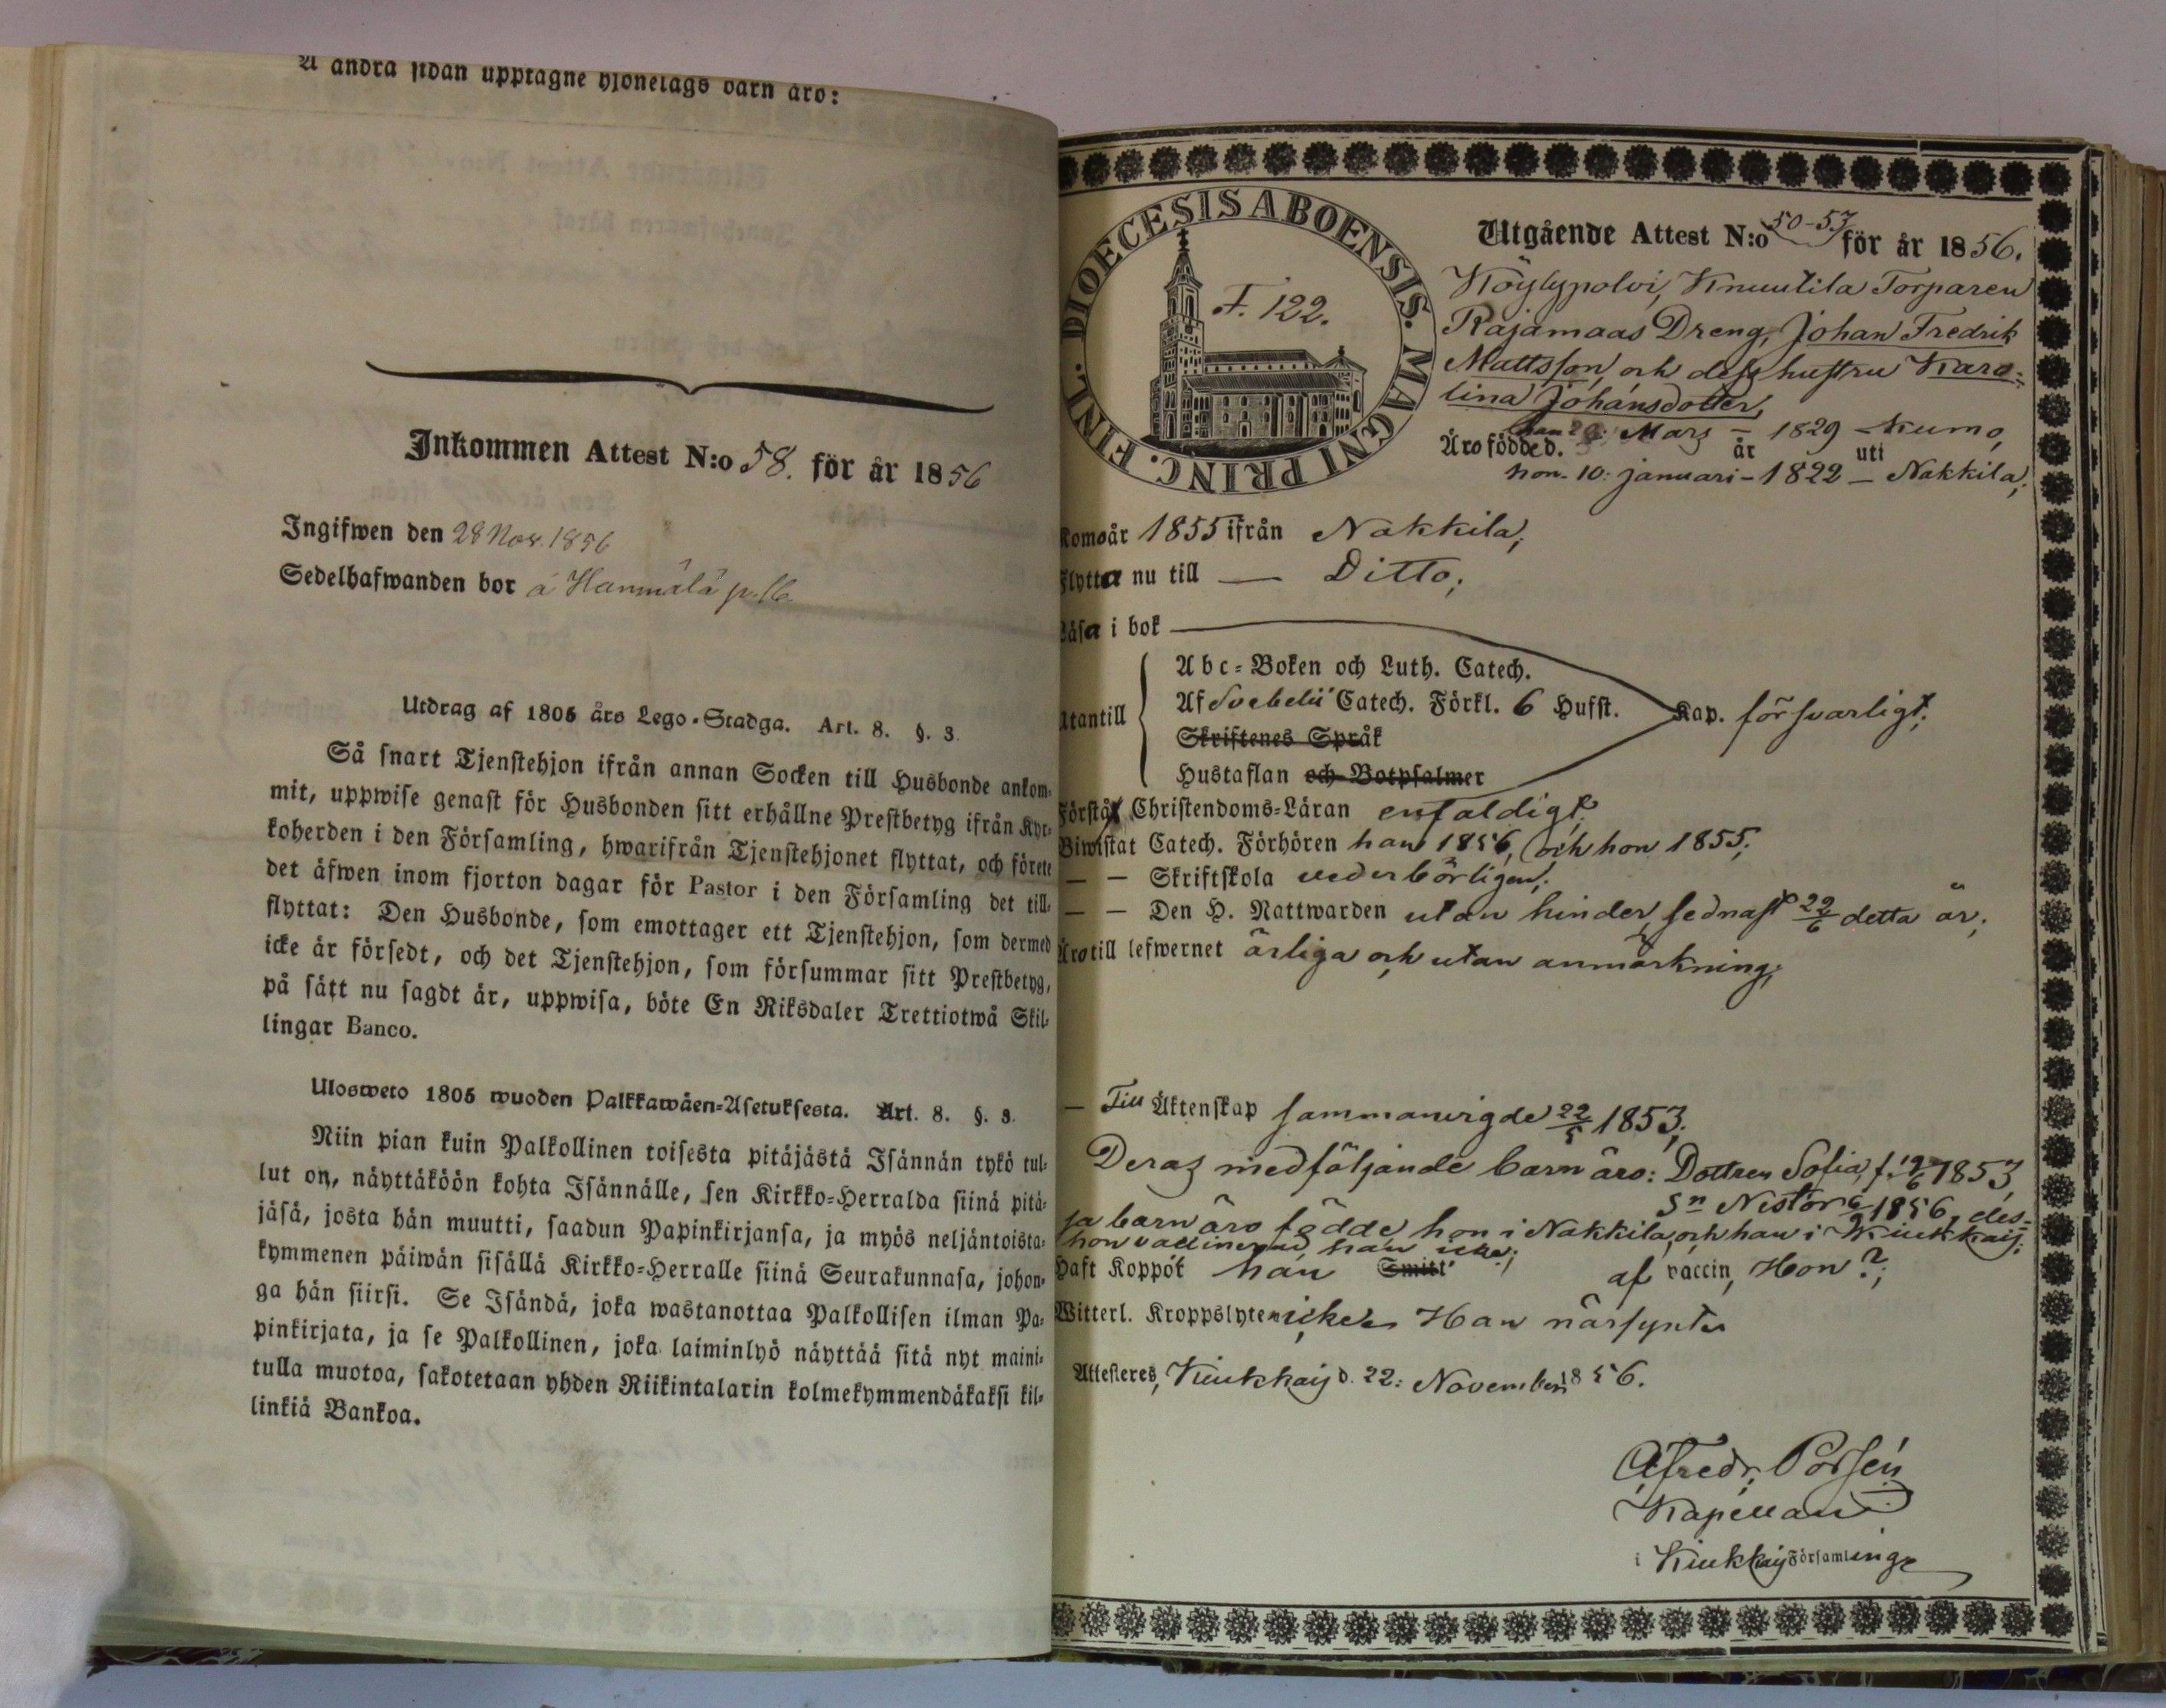 A andra sidan upptagne hjonelags barn äro:
Inkommen Attest N:o 58. för år 1856
Ingifwen den 28 Nov. 1856
Sedelhafwanden bor å Hannälä
Utdrag af 1805 års Lego-Stadga. Art. 8. §. 3.
Så snart Tjenstehjon ifrån annan Socken till Husbonde ankom-
mit, uppwise genast för Husbonden sitt erhållne Prestbetyg ifrån Kyr-
koherden i den Församling, hwarifrån Tjenstehjonet flyttat, och förete
det äfwen inom fjorton dagar för Pastor i den Församling det till-
flyttat: Den Husbonde, som emottager ett Tjenstehjon, som dermed
icke är försedt, och det Tjenstehjon, som försummar sitt Prestbetyg,
på sätt nu sagdt är, uppwisa, böte En Riksdaler Trettiotwå Skil-
lingar Banco.
Ulosweto 1805 wuoden Palkkawäen-Asetuksesta. Art. 8. §. 3.
Niin pian kuin Palkollinen toisesta pitäjästä Isännän tykö tul-
lut on, näyttäköön kohta Isännälle, sen Kirkko-Herralda siinä pitä-
jäsä, josta hän muutti, saadun Papinkirjansa, ja myös neljäntoista-
kymmenen päiwän sisällä Kirkko-Herralle siinä Seurakunnasa, johon-
ga hän siirsi. Se Isändä, joka wastanottaa Palkollisen ilman Pa-
pinkirjata, ja se Palkollinen, joka laiminlyö näyttää sitä nyt maini-
tulla muotoa, sakotetaan yhden Riikintalarin kolmekymmendäkaksi kil-
linkiä Bankoa.
DIOECESIS ABOENSIS. MAGNI PRINC. FINL.
F. 122.
Utgående Attest N:o 50-53 för år 1856.
Köylypolvi, Knuutila Torparen
Rajamaas Dreng, Johan Fredrik
Mattsson, och dess hustru Karo-
lina Johansdotter,
han Mars – 1829 – Kumo,
Äro födde d. år uti
hon 10: januari – 1822 – Nakkila;
Komo år 1855 ifrån Nakkila;
Flytta nu till — Ditto;
Läsa i bok
Utantill
Abc-Boken och Luth. Catech.
Af Svebelii Catech. Förkl. 6 Hufst. Kap. försvarligt;
Skriftenes Språk
Hustaflan och Botpsalmer
Förstå Christendoms-Läran enfaldigt;
Biwistat Catech. Förhören han 1856, och hon 1855;
— — Skriftskola vederbörligen;
— — Den H. Nattwarden utan hinder, sednast 29/6 detta år;
Äro till lefwernet ärliga och utan anmärkning;
— Till Äktenskap sammanvigde 22/5 1853;
Deras medföljande barn äro: Dottren Sofia, f. 19/6 1853,
Sn Nestor 6/9 1856, des-
sa barn äro födde, hon i Nakkila, och han i Kiukkais;
hon vaccinerad, han icke;
Haft Koppor han Smitt af vaccin, Hon?;
Witterl. Kroppslyten icke; Han närsynter
Attesteres, Kiukkais d. 22: November 1856.
Alfredr. Porsén
Kapellan
i Kiukkais Församlinge